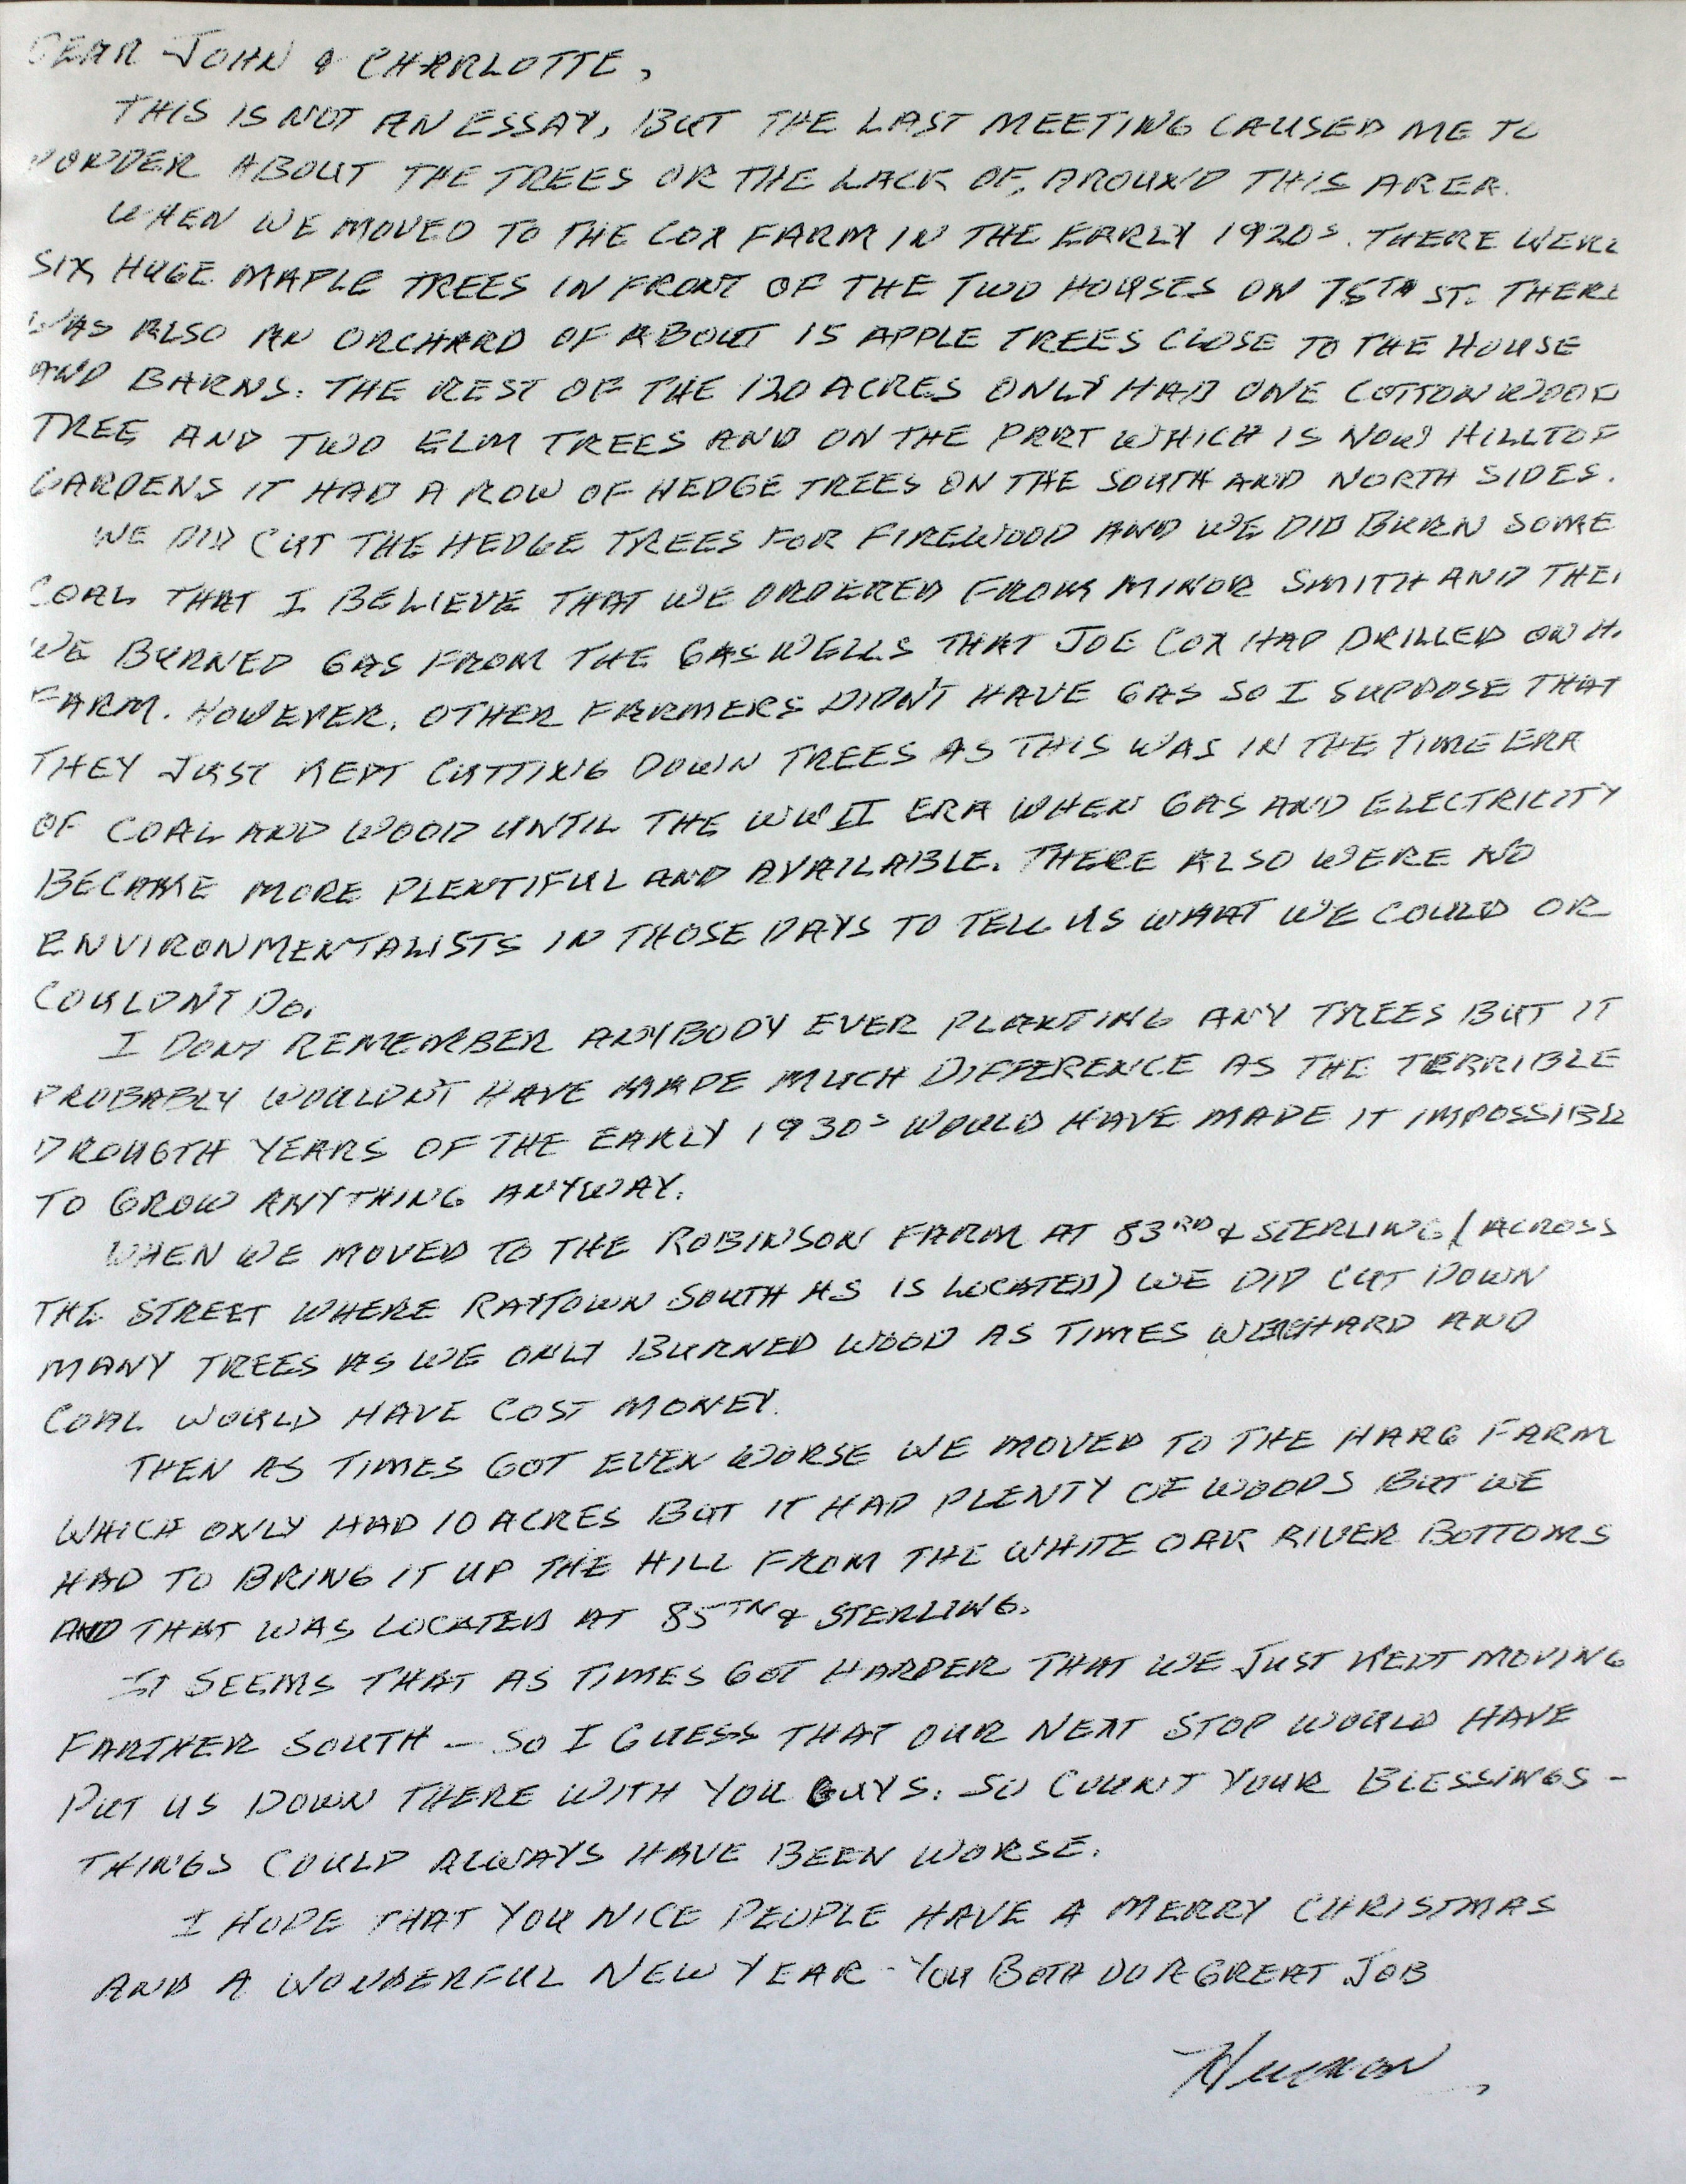 DEAR JOHN & CHARLOTTE,
THIS IS NOT AN ESSAY, BUT THE LAST MEETING CAUSED ME TO
PONDER ABOUT THE TREES OR THE LACK OF, AROUND THIS AREA.
WHEN WE MOVED TO THE COX FARM IN THE EARLY 1920S. THERE WERE
SIX HUGE MAPLE TREES IN FRONT OF THE TWO HOUSES ON 75TH ST. THERE
WAS ALSO AN ORCHARD OF ABOUT 15 APPLE TREES CLOSE TO THE HOUSE
AND BARNS. THE REST OF THE 120 ACRES ONLY HAD ONE COTTONWOOD
TREE AND TWO ELM TREES AND ON THE PART WHICH IS NOW HILLTOP
GARDENS IT HAD A ROW OF HEDGE TREES ON THE SOUTH AND NORTH SIDES.
WE DID CUT THE HEDGE TREES FOR FIREWOOD AND WE DID BURN SOME
COAL THAT I BELIEVE THAT WE ORDERED FROM MINOR SMITH AND THEN
WE BURNED GAS FROM THE GAS WELLS THAT JOE COX HAD DRILLED ON H.
FARM. HOWEVER, OTHER FARMERS DIDN'T HAVE GAS SO I SUPPOSE THAT
THEY JUST KEPT CUTTING DOWN TREES AS THIS WAS IN THE TIME ERA
OF COAL AND WOOD UNTIL THE WWII ERA WHEN GAS AND ELECTRICITY
BECAME MORE PLENTIFUL AND AVAILABLE. THERE ALSO WERE NO
ENVIRONMENTALISTS IN THOSE DAYS TO TELL US WHAT WE COULD OR
COULDN'T DO.
I DON'T REMEMBER ANYBODY EVER PLANTING ANY TREES BUT IT
PROBABLY WOULDN'T HAVE MADE MUCH DIFFERENCE AS THE TERRIBLE
DROUGTH YEARS OF THE EARLY 1930S WOULD HAVE MADE IT IMPOSSIBLE
TO GROW ANYTHING ANYWAY.
WHEN WE MOVED TO THE ROBINSON FARM AT 83RD & STERLING (ACROSS
THE STREET WHERE RAYTOWN SOUTH HS IS LOCATED) WE DID CUT DOWN
MANY TREES AS WE ONLY BURNED WOOD AS TIMES WERE HARD AND
COAL WOULD HAVE COST MONEY.
THEN AS TIMES GOT EVEN WORSE WE MOVED TO THE HARG FARM
WHICH ONLY HAD 10 ACRES BUT IT HAD PLENTY OF WOODS BUT WE
HAD TO BRING IT UP THE HILL FROM THE WHITE OAK RIVER BOTTOMS
AND THAT WAS LOCATED AT 85TH & STERLING.
IT SEEMS THAT AS TIMES GOT HARDER THAT WE JUST KEPT MOVING
FARTHER SOUTH — SO I GUESS THAT OUR NEXT STOP WOULD HAVE
PUT US DOWN THERE WITH YOU GUYS. SO COUNT YOUR BLESSINGS -
THINGS COULD ALWAYS HAVE BEEN WORSE.
I HOPE THAT YOU NICE PEOPLE HAVE A MERRY CHRISTMAS
AND A WONDERFUL NEW YEAR - YOU BOTH DO A GREAT JOB